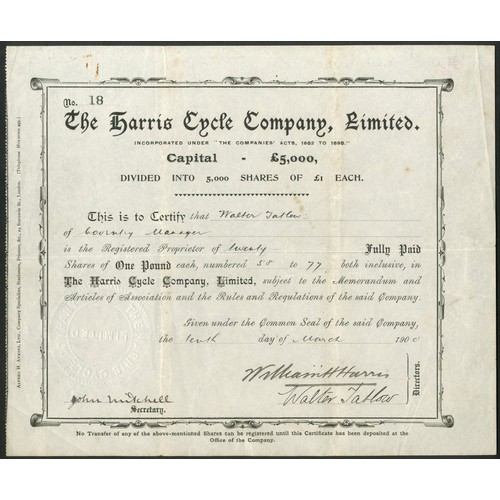 No. 18
The Harris Cycle Company, Limited.
INCORPORATED UNDER "THE COMPANIES' ACTS, 1862 TO 1898."
Capital - £5,000,
DIVIDED INTO 5,000 SHARES OF £1 EACH.
This is to Certify that Walter Tatlow
of Coventry Manager
is the Registered Proprietor of twenty Fully Paid
Shares of One Pound each, numbered 58 to 77 both inclusive, in
The Harris Cycle Company, Limited, subject to the Memorandum and
Articles of Association and the Rules and Regulations of the said Company.
Given under the Common Seal of the said Company,
the tenth day of March 1900
William H Harris
Walter Tatlow
Directors.
John Mitchell
Secretary.
No Transfer of any of the above-mentioned Shares can be registered until this Certificate has been deposited at the
Office of the Company.